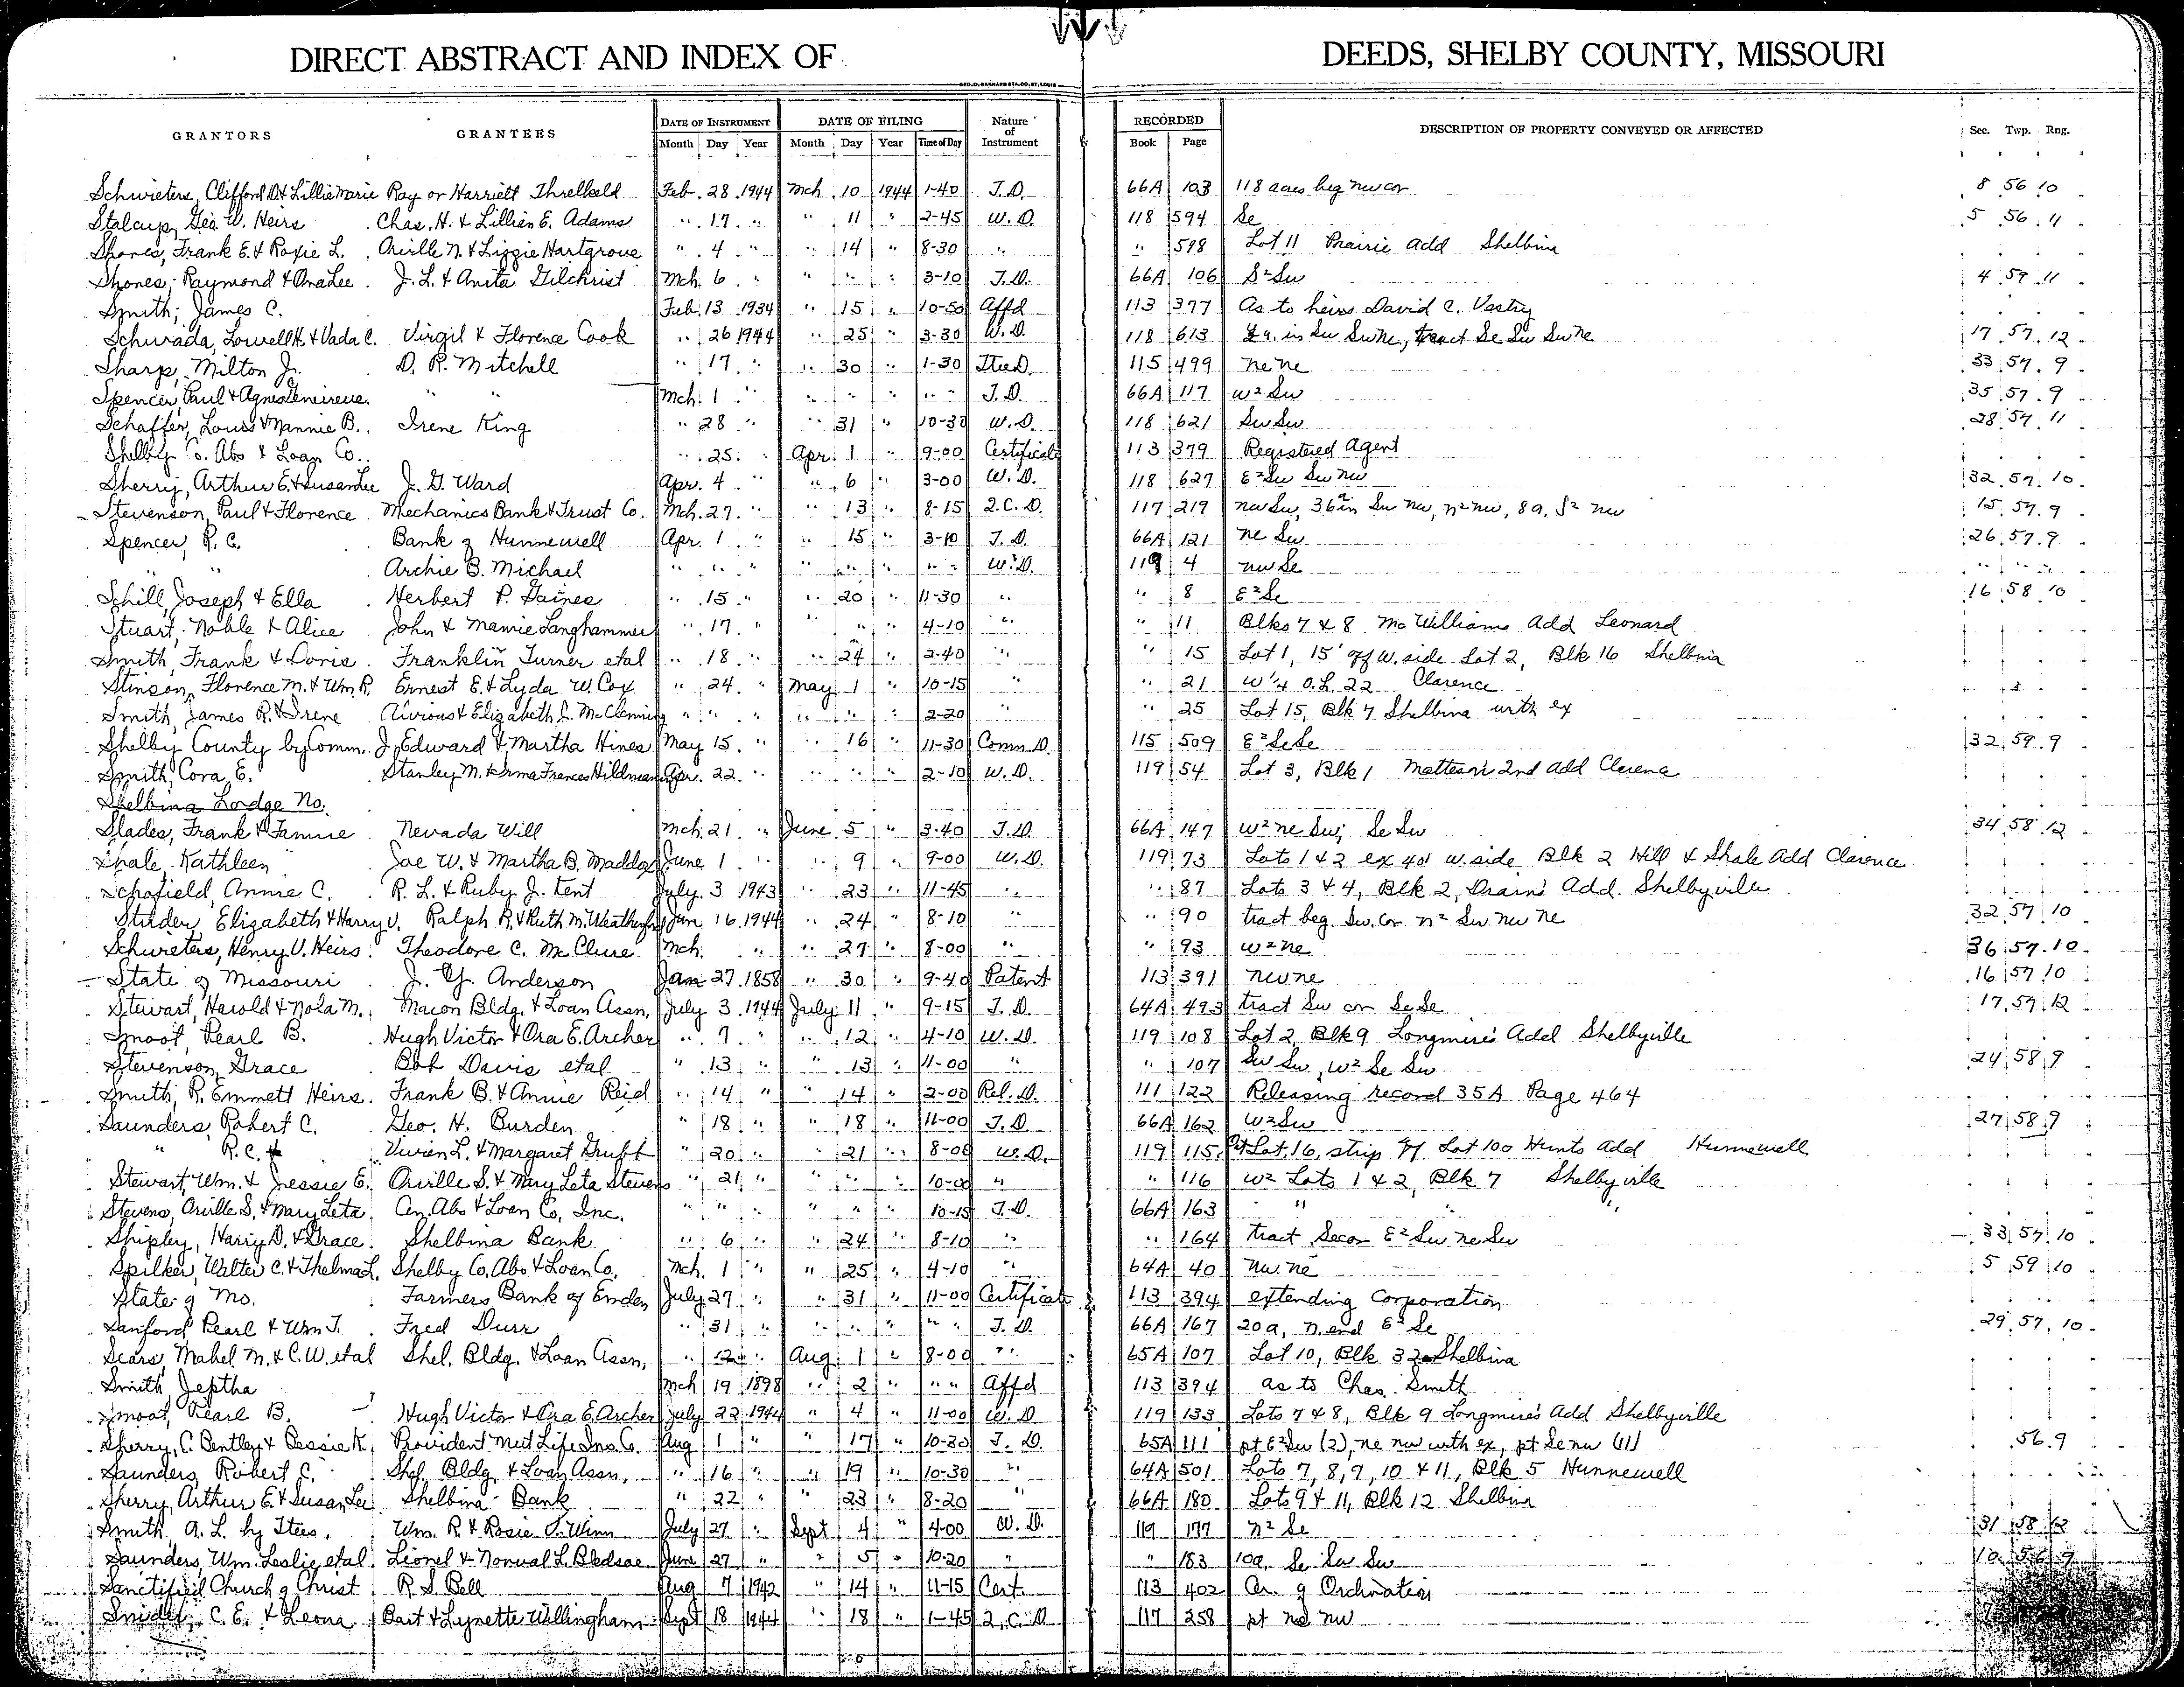 DIRECT ABSTRACT AND INDEX OF DEEDS, SHELBY COUNTY, MISSOURI
GEO. D. BARNARD STA. CO. ST. LOUIS
GRANTORS GRANTEES DATE OF INSTRUMENT Month Day Year DATE OF FILING Month Day Year Time of Day Nature of Instrument RECORDED Book Page DESCRIPTION OF PROPERTY CONVEYED OR AFFECTED Sec. Twp. Rng.
Schwieters, Clifford D. & Lillie Marie Ray or Harriett Threlkeld Feb. 28 1944 Mch 10 1944 1-40 T.D. 66A 103 118 acres beg nw cor 8 56 10
Stalcup, Geo. W. Heirs Chas. H. & Lillien E. Adams " 17 " " 11 " 2-45 W.D. 118 594 Se 5 56 11
Shores, Frank E. & Roxie L. Orville N. & Lizzie Hartgrove " 4 " " 14 " 8-30 " " 598 Lot 11 Prairie Add Shelbina
Shores, Raymond & Ora Lee J. L. & Anita Gilchrist Mch. 6 " " " " 3-10 T.D. 66A 106 S² Sw 4 57 11
Smith, James C. Feb. 13 1934 " 15 " 10-50 Affd 113 377 As to heirs David C. Vestry
Schwada, Lowell H. & Vada C. Virgil & Florence Cook " 26 1944 " 25 " 3-30 W.D. 118 613 in Sw Sw Ne, tract Se Sw Sw Ne 17 57 12
Sharp, Milton Jr. D. R. Mitchell " 17 " " 30 " 1-30 Ttee D. 115 499 ne ne 33 57 9
Spencer, Paul & Agnes Genevieve " " Mch. 1 " " " " " " T.D. 66A 117 w² Sw 35 57 9
Schaffer, Louis & Mannie B. Irene King " 28 " " 31 " 10-30 W.D. 118 621 Sw Sw 28 57 11
Shelby Co. Abs & Loan Co. " 25 " Apr. 1 " 9-00 Certificate 113 379 Registered Agent
Sherry, Arthur E. & Susan Lee J. G. Ward Apr. 4 " " 6 " 3-00 W.D. 118 627 E² Sw Sw nw 32 57 10
Stevenson, Paul & Florence Mechanics Bank & Trust Co. Mch. 27 " " 13 " 8-15 2.C.D. 117 219 nw Sw, 36 in Sw nw, n² nw, 8a. S² nw 15 57 9
Spencer, R. C. Bank of Hunnewell Apr. 1 " " 15 " 3-10 T.D. 66A 121 ne Sw 26 57 9
" " Archie B. Michael " " " " " " " " W.D. 119 4 nw Se " " "
Schill, Joseph & Ella Herbert P. Gaines " 15 " " 20 " 11-30 " " 8 E² Se 16 58 10
Stuart, Noble & Alice John & Mamie Langhammer " 17 " " " " 4-10 " " 11 Blks 7 & 8 McWilliams Add Leonard
Smith, Frank & Doris Franklin Turner etal " 18 " " 24 " 2-40 " " 15 Lot 1, 15' off W. side Lot 2, Blk 16 Shelbina
Stinson, Florence M. & Wm R. Ernest E. & Lyda W. Cox " 24 " May 1 " 10-15 " " 21 W ¼ O.L. 22 Clarence
Smith, James R. & Irene Alvious & Elizabeth L. McClenning " " " " " " 2-20 " " 25 Lot 15, Blk 7 Shelbina with ex
Shelby County by Comm. J. Edward & Martha Hines May 15 " " 16 " 11-30 Comm. D. 115 509 E² Se Se 32 59 9
Smith, Cora E. Stanley M. & Irma Frances Hildman Apr. 22 " " " " 2-10 W.D. 119 54 Lot 3, Blk 1 Matteson's 2nd Add Clarence
Shelbina Lodge No.
Slades, Frank & Fannie Nevada Will Mch. 21 " June 5 " 3-40 T.D. 66A 147 w² ne Sw; Se Sw 34 58 12
Shale, Kathleen Joe W. & Martha B. Maddox June 1 " " 9 " 9-00 W.D. 119 73 Lots 1 & 2 ex 40' w. side Blk 2 Hill & Shale Add Clarence
Schofield, Annie C. R. L. & Ruby J. Kent July 3 1943 " 23 " 11-45 " " 87 Lots 3 & 4, Blk 2, Drain's Add. Shelbyville
Studer, Elizabeth & Harry V. Ralph R. & Ruth M. Weatherford Jan 16 1944 " 24 " 8-10 " " 90 tract beg. Sw. Cor n² Sw nw ne 32 57 10
Schwieters, Henry V. Heirs Theodore C. McClure Mch. " " 27 " 8-00 " " 93 w² ne 36 57 10
State of Missouri J. Y. Anderson Jan 27 1858 " 30 " 9-40 Patent 113 391 nw ne 16 57 10
Stewart, Harold & Nola M. Macon Bldg. & Loan Assn. July 3 1944 July 11 " 9-15 T.D. 64A 493 tract Sw cor Se Se 17 57 12
Smoot, Pearl B. Hugh Victor & Ora E. Archer " 7 " " 12 " 4-10 W.D. 119 108 Lot 2, Blk 9 Longmire's Add Shelbyville
Stevenson, Grace Bob Davis etal " 13 " " 13 " 11-00 " " 107 Sw Sw, w² Se Sw 24 58 9
Smith, R. Emmett Heirs Frank B. & Annie Reid " 14 " " 14 " 2-00 Rel. D. 111 122 Releasing record 35A Page 464
Saunders, Robert C. Geo. H. Burden " 18 " " 18 " 11-00 T.D. 66A 162 w² Sw 27 58 9
" R.C. Vivien L. & Margaret Grubb " 20 " " 21 " 8-00 W.D. 119 115 pt Lot 16, strip off Lot 100 Hunts Add Hunnewell
Stewart, Wm. & Jessie E. Orville S. & Mary Leta Stevens " 21 " " " " 10-00 " " 116 w² Lots 1 & 2, Blk 7 Shelbyville
Stevens, Orville S. & Mary Leta Cen. Abs & Loan Co. Inc. " " " " " " 10-15 T.D. 66A 163 " " "
Shipley, Harry D. & Grace Shelbina Bank " 6 " " 24 " 8-10 " " 164 tract Se cor E² Sw ne Sw 33 57 10
Spilker, Walter C. & Thelma L. Shelby Co. Abs & Loan Co. Mch. 1 " " 25 " 4-10 " 64A 40 nw ne 5 59 10
State of Mo. Farmers Bank of Emden July 27 " " 31 " 11-00 Certificate 113 394 extending Corporation
Sanford, Pearl & Wm T. Fred Durr " 31 " " " " " " T.D. 66A 167 20a, n. end E² Se 29 57 10
Sears, Mabel M. & C.W. etal Shel. Bldg. & Loan Assn. " 12 " Aug 1 " 8-00 " 65A 107 Lot 10, Blk 32 Shelbina
Smith, Jeptha Mch 19 1898 " 2 " " " Affd 113 394 as to Chas. Smith
Smoot, Pearl B. Hugh Victor & Ora E. Archer July 22 1944 " 4 " 11-00 W.D. 119 133 Lots 7 & 8, Blk 9 Longmire's Add Shelbyville
Sherry, C. Bentley & Bessie K. Provident Mut Life Ins. Co. Aug 1 " " 17 " 10-30 T.D. 65A 111 pt E² Sw (2), ne nw with ex, pt Se nw (11) 56 9
Saunders, Robert C. Shel. Bldg. & Loan Assn. " 16 " " 19 " 10-30 " 64A 501 Lots 7, 8, 9, 10 & 11, Blk 5 Hunnewell
Sherry, Arthur E. & Susan Lee Shelbina Bank " 22 " " 23 " 8-20 " 66A 180 Lots 9 & 11, Blk 12 Shelbina
Smith, A. L. by Ttees. Wm. R. & Rosie J. Winn July 27 " Sept 4 " 4-00 W.D. 119 177 n² Se 31 58 12
Saunders, Wm. Leslie etal Lionel & Norval L. Bledsoe June 27 " " 5 " 10-20 " " 183 10a, Se Sw Sw 10 56 9
Sanctified Church of Christ R. S. Bell Aug 7 1942 " 14 " 11-15 Cert. 113 402 of Ordination
Snider, C. E. & Leona Bart & Lynette Willingham Sept 18 1944 " 18 " 1-45 2.C.D 117 258 pt nw